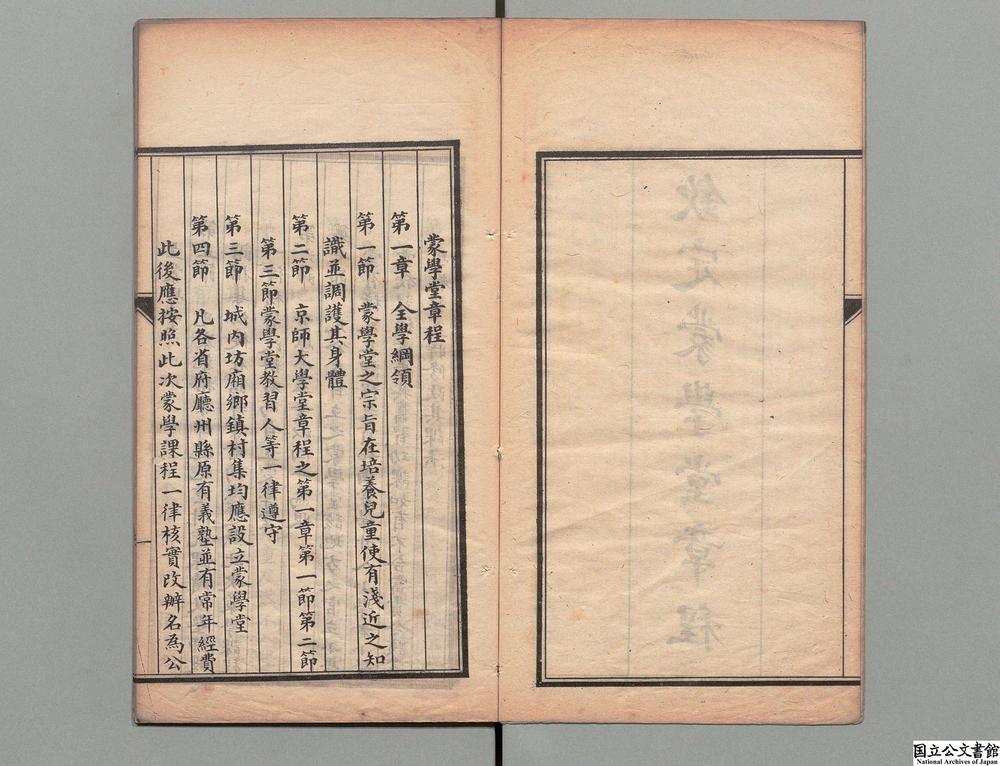 蒙學堂章程
第一章　全學綱領
第一節　蒙學堂之宗旨在培養兒童使有淺近之知
識並調護其身體
第二節　京師大學堂章程之第一章第一節第二節
第三節蒙學堂教習人等一律遵守
第三節　城內坊廂鄉鎮村集均應設立蒙學堂
第四節　凡各省府廳州縣原有義塾並有常年經費
此後應按照此次蒙學課程一律核實改辦名為公
欽定蒙學堂章程
国立公文書館
National Archives of Japan